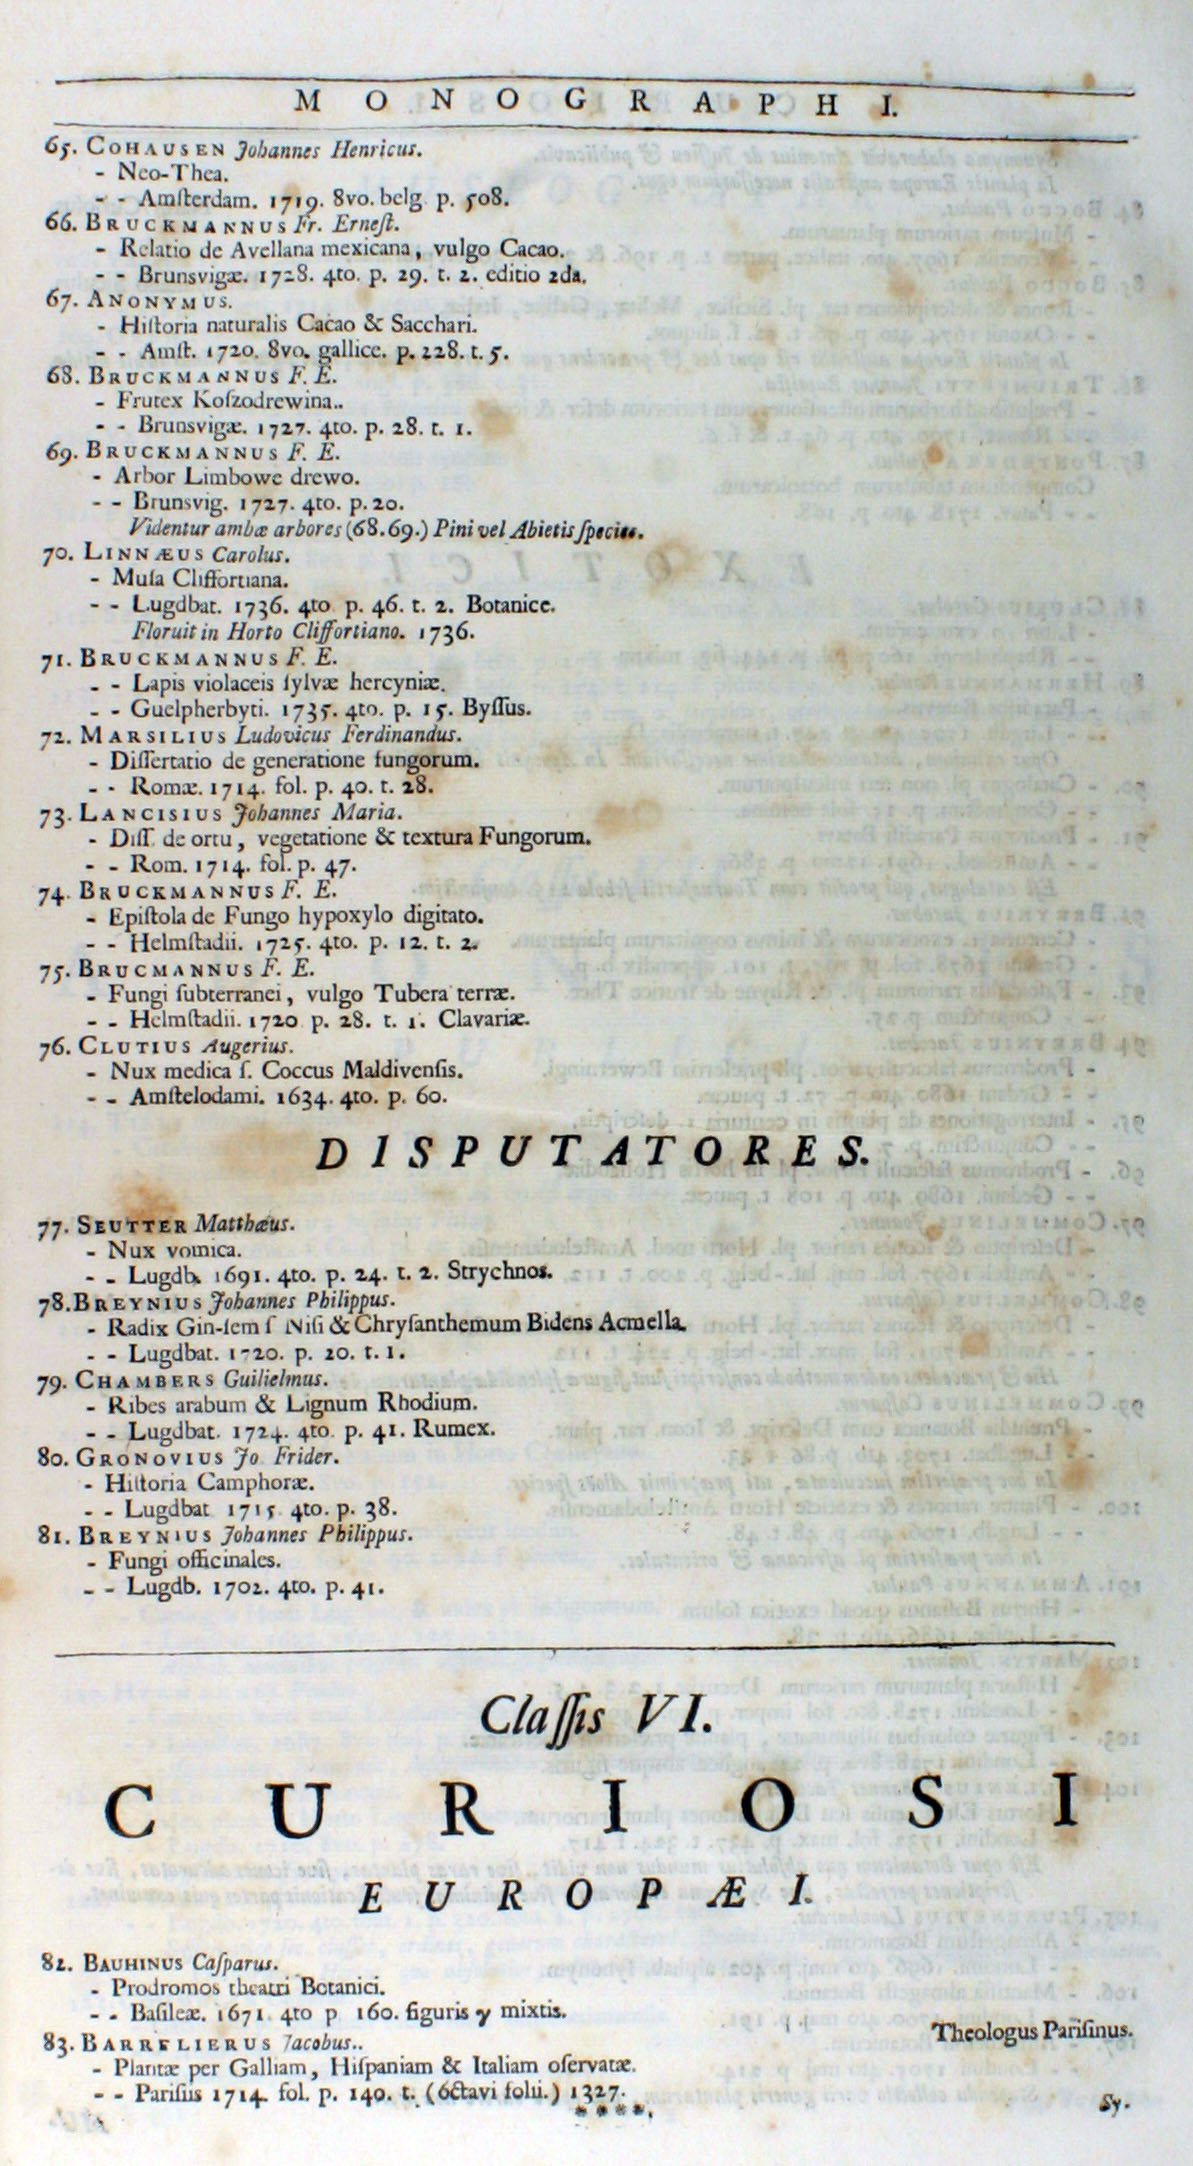 MONOGRAPHI.
65. COHAUSEN Johannes Henricus.
- Neo-Thea.
- - Amſterdam. 1719. 8vo. belg. p. 508.
66. BRUCKMANNUS Fr. Erneſt.
- Relatio de Avellana mexicana, vulgo Cacao.
- - Brunsvigæ. 1728. 4to. p. 29. t. 2. editio 2da.
67. ANONYMUS.
- Hiſtoria naturalis Cacao & Sacchari.
- - Amſt. 1720. 8vo. gallice. p. 228. t. 5.
68. BRUCKMANNUS F. E.
- Frutex Koſzodrewina..
- - Brunsvigæ. 1727. 4to. p. 28. t. 1.
69. BRUCKMANNUS F. E.
- Arbor Limbowe drewo.
- - Brunsvig. 1727. 4to. p. 20.
Videntur ambæ arbores (68.69.) Pini vel Abietis ſpecies.
70. LINNÆUS Carolus.
- Muſa Cliffortiana.
- - Lugdbat. 1736. 4to. p. 46. t. 2. Botanice.
Floruit in Horto Cliffortiano. 1736.
71. BRUCKMANNUS F. E.
- - Lapis violaceis ſylvæ hercyniæ.
- - Guelpherbyti. 1735. 4to. p. 15. Byſſus.
72. MARSILIUS Ludovicus Ferdinandus.
- Diſſertatio de generatione fungorum.
- - Romæ. 1714. fol. p. 40. t. 28.
73. LANCISIUS Johannes Maria.
- Diſſ. de ortu, vegetatione & textura Fungorum.
- - Rom. 1714. fol. p. 47.
74. BRUCKMANNUS F. E.
- Epiſtola de Fungo hypoxylo digitato.
- - Helmſtadii. 1725. 4to. p. 12. t. 2.
75. BRUCMANNUS F. E.
- Fungi ſubterranei, vulgo Tubera terræ.
- - Helmſtadii. 1720 p. 28. t. 1. Clavariæ.
76. CLUTIUS Augerius.
- Nux medica ſ. Coccus Maldivenſis.
- - Amſtelodami. 1634. 4to. p. 60.
DISPUTATORES.
77. SEUTTER Matthæus.
- Nux vomica.
- - Lugdb. 1691. 4to. p. 24. t. 2. Strychnos.
78. BREYNIUS Johannes Philippus.
- Radix Gin-ſem ſ Niſi & Chryſanthemum Bidens Acmella.
- - Lugdbat. 1720. p. 20. t. 1.
79. CHAMBERS Guilielmus.
- Ribes arabum & Lignum Rhodium.
- - Lugdbat. 1724. 4to. p. 41. Rumex.
80. GRONOVIUS Jo Frider.
- Hiſtoria Camphoræ.
- - Lugdbat 1715. 4to. p. 38.
81. BREYNIUS Johannes Philippus.
- Fungi officinales.
- - Lugdb. 1702. 4to. p. 41.
Claſſis VI.
CURIOSI
EUROPÆI.
82. BAUHINUS Caſparus.
- Prodromos theatri Botanici.
- - Baſileæ. 1671. 4to p 160. figuris y mixtis.
83. BARRELIERUS Jacobus..
Theologus Pariſinus.
- Plantæ per Galliam, Hiſpaniam & Italiam oſervatæ.
- - Pariſiis 1714. fol. p. 140. t. (octavi folii.) 1327.
****.
Sy-